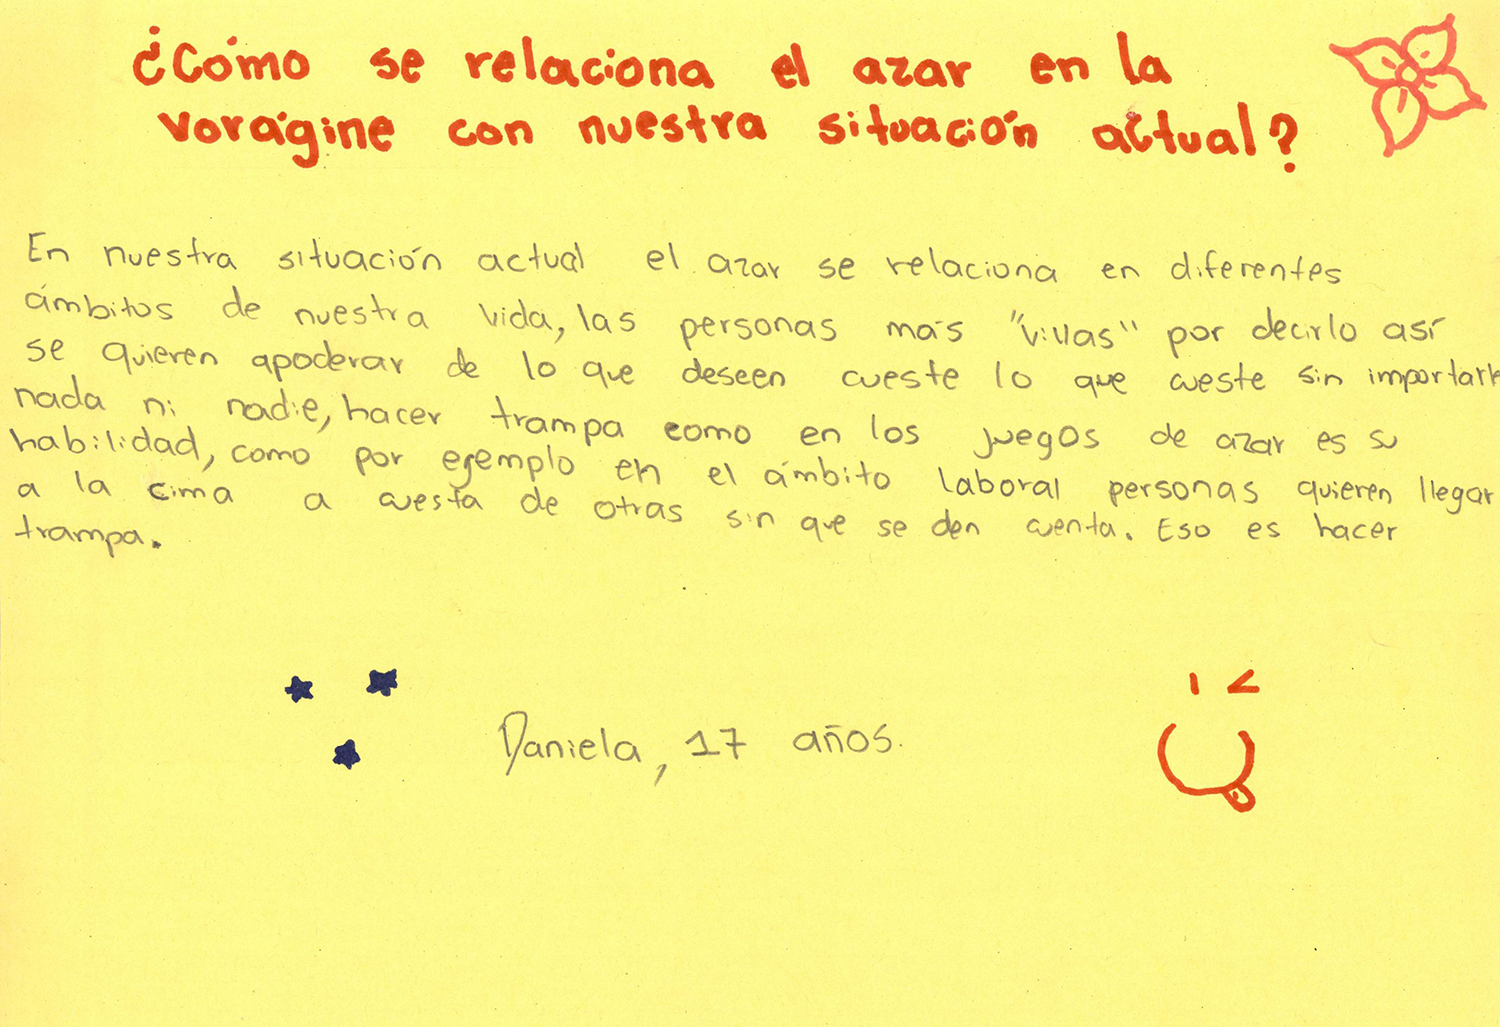 ¿Cómo se relaciona el azar en la
vorágine con nuestra situación actual?
En nuestra situación actual el azar se relaciona en diferentes
ámbitos de nuestra vida, las personas más "vivas" por decirlo así
se quieren apoderar de lo que deseen cueste lo que cueste sin importarle
nada ni nadie, hacer trampa como en los juegos de azar es su
habilidad, como por ejemplo en el ámbito laboral personas quieren llegar
a la cima a cuesta de otras sin que se den cuenta. Eso es hacer
trampa.
Daniela, 17 años.